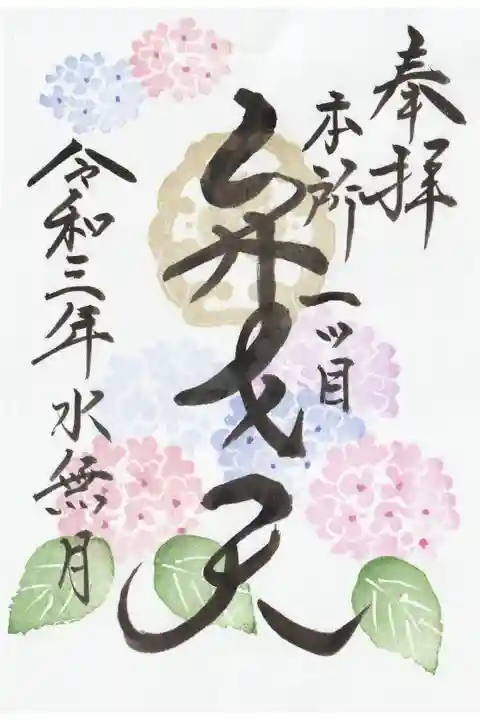 奉拝
本所一ツ目
弁才天
令和三年水無月